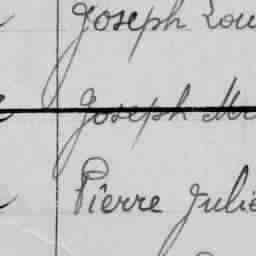 Joseph Lou
Joseph Me
Pierre Julie